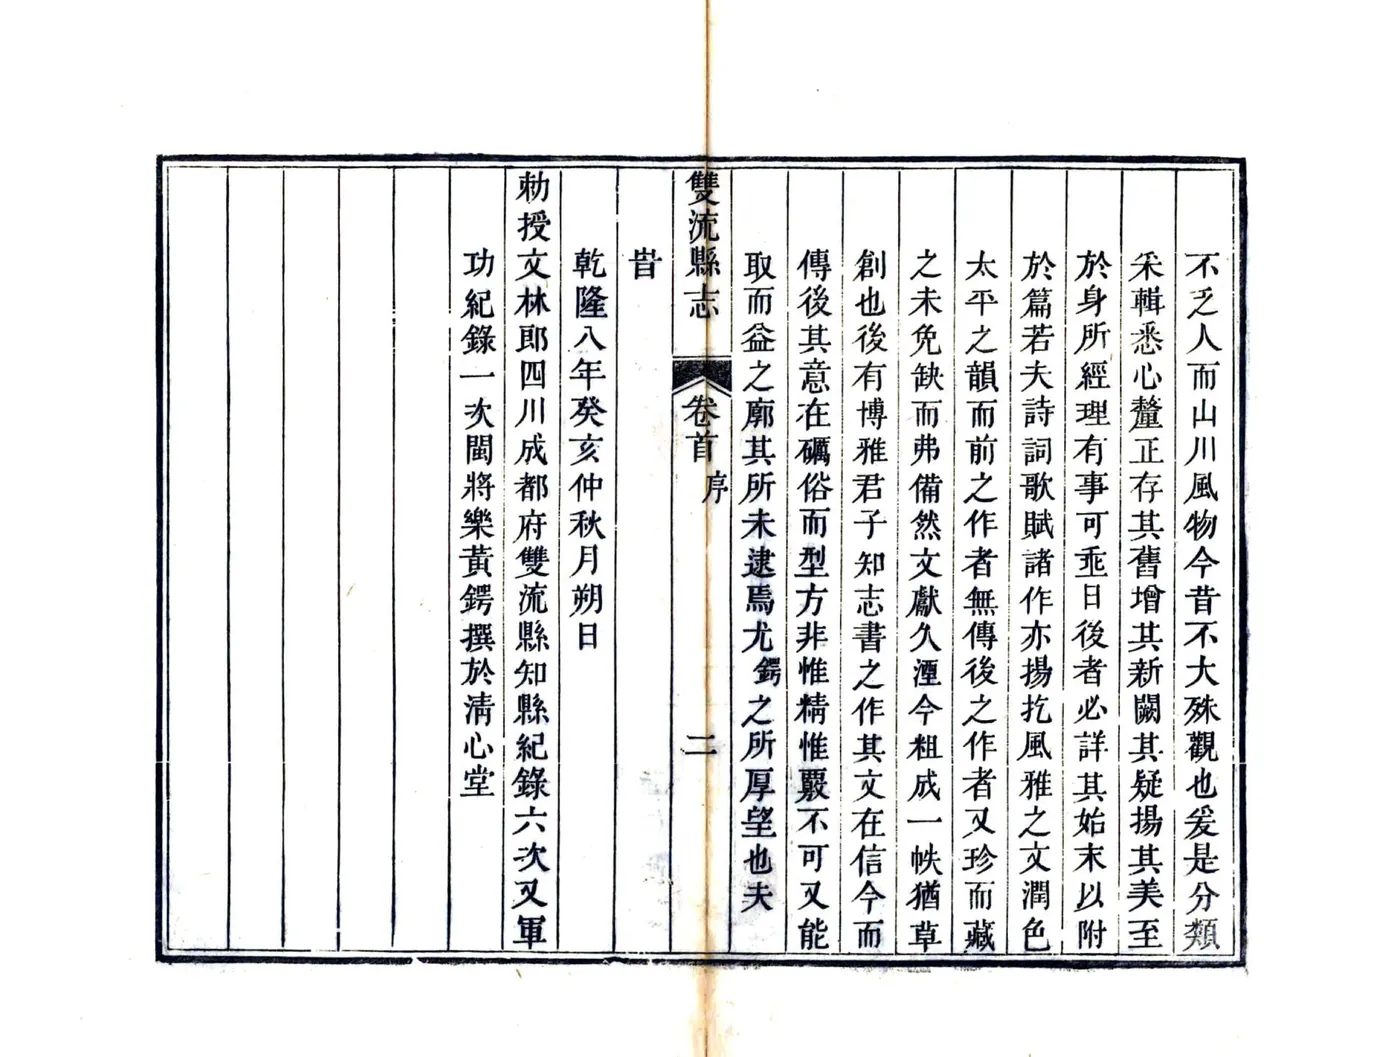 不乏人而山川風物今昔不大殊觀也爰是分類
采輯悉心釐正存其舊增其新闕其疑揚其美至
於身所經理有事可垂日後者必詳其始末以附
於篇若夫詩詞歌賦諸作亦揚扢風雅之文潤色
太平之韻而前之作者無傳後之作者又珍而藏
之未免缺而弗備然文獻久湮今粗成一帙猶草
創也後有博雅君子知志書之作其文在信今而
傳後其意在礪俗而型方非惟精惟覈不可又能
取而益之廓其所未逮焉尤鍔之所厚望也夫
雙流縣志
卷首
序
二
旹
乾隆八年癸亥仲秋月朔日
勅授文林郎四川成都府雙流縣知縣紀錄六次又軍
功紀錄一次閩將樂黃鍔撰於清心堂